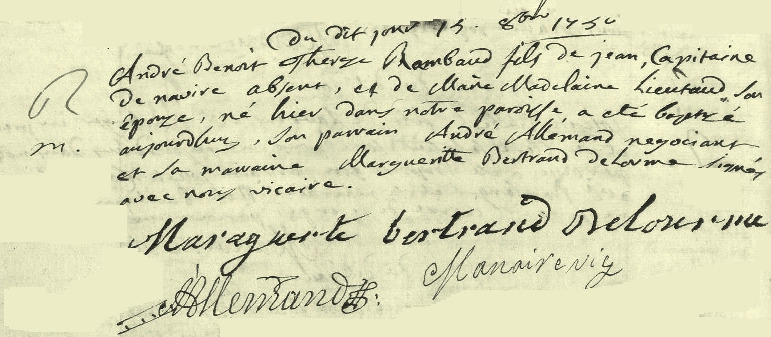 Du dit jour 15. 8bre 1750
André Benoit Thereze Rambaud fils de jean, Capitaine
de navire absent, et de Marie Madelaine Lieutaud son
épouze, né hier dans notre paroisse a eté baptizé
aujourdhuy, son parrain André Allemand negociant
et sa marraine Margueritte Bertrand Delorme signés
avec nous vicaire.
R
m.
Maraguerte bertrand Delourme
AAllemand
Manaire vic